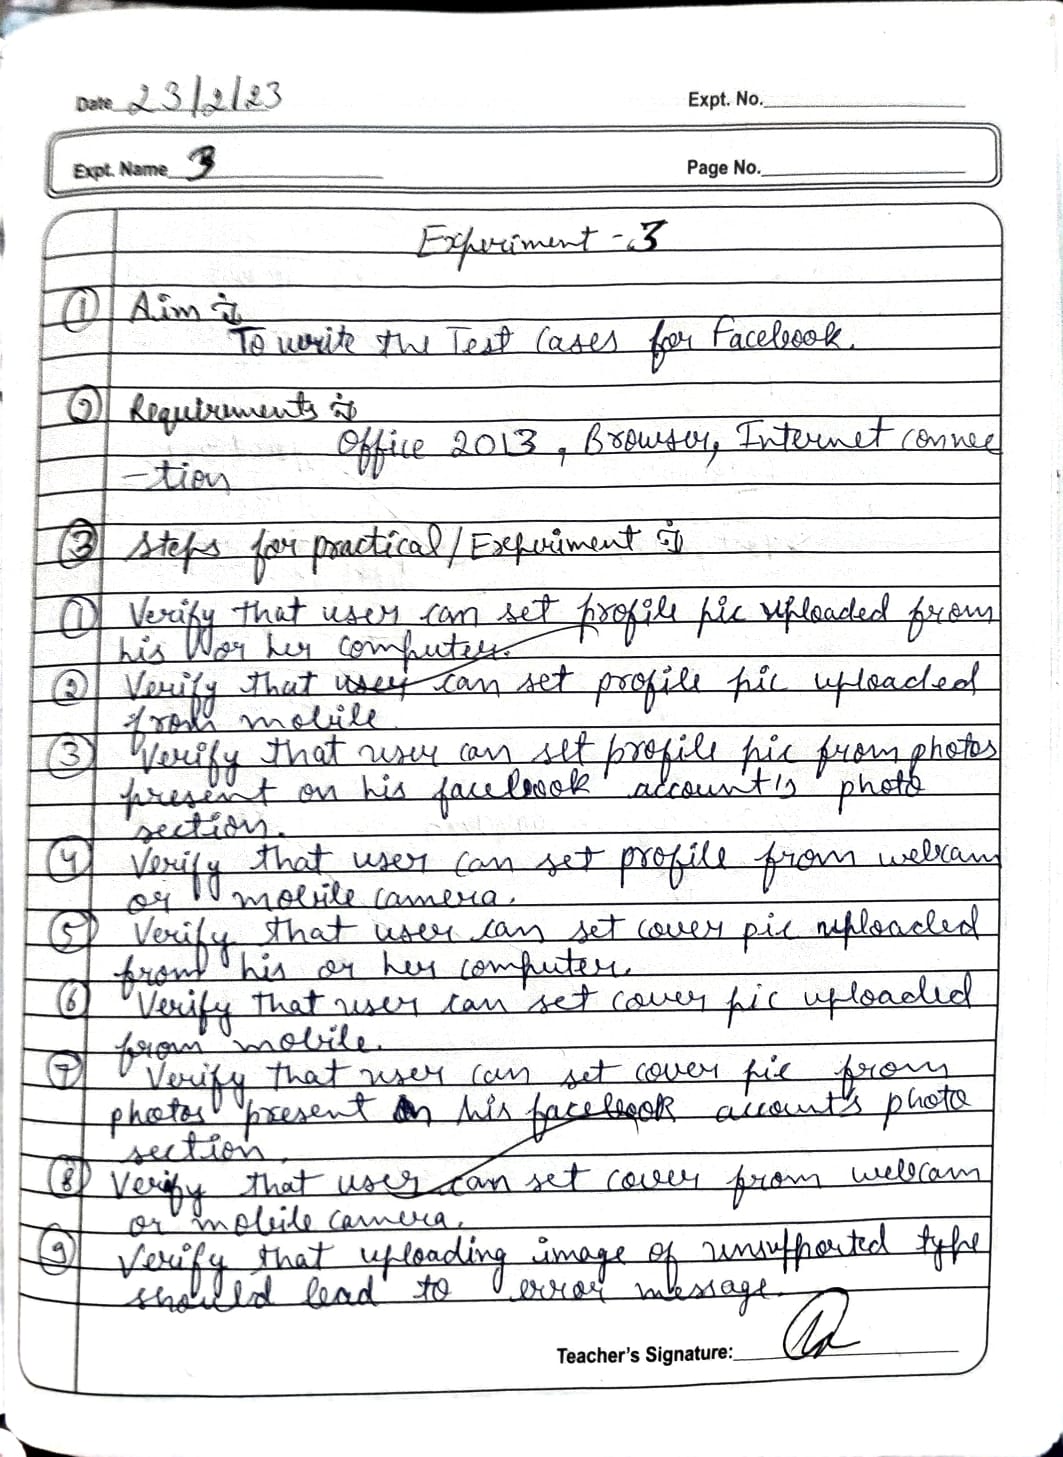 Date 23/2/23 Expt. No.
Expt. Name 3 Page No.
Experiment - 3
① Aim :-
To write the Test Cases for Facebook.
② Requirements :-
Office 2013, Browser, Internet connec
-tion
③ Steps for practical/Experiment :-
① Verify that user can set profile pic uploaded from
his or her computer.
② Verify that user can set profile pic uploaded
from mobile
③ Verify that user can set profile pic from photos
present on his facebook account's photo
section.
④ Verify that user can set profile from webcam
or mobile camera.
⑤ Verify that user can set cover pic uploaded
from his or her computer.
⑥ Verify that user can set cover pic uploaded
from mobile.
⑦ Verify that user can set cover pic from
photos present on his facebook account's photo
section.
⑧ Verify that user can set cover from webcam
or mobile camera.
⑨ Verify that uploading image of unsupported type
should lead to error message.
Teacher's Signature: